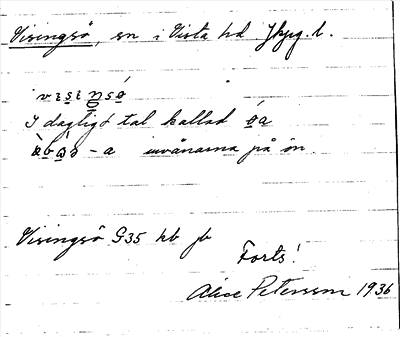 Visingsö, sn i Vista hd Jkpg. l.
visiŋsö
I dagligt tal kallad öa
öbor -a invånarna på ön.
Visingsö S35 hb jb
Forts!
Alice Petersson 1936